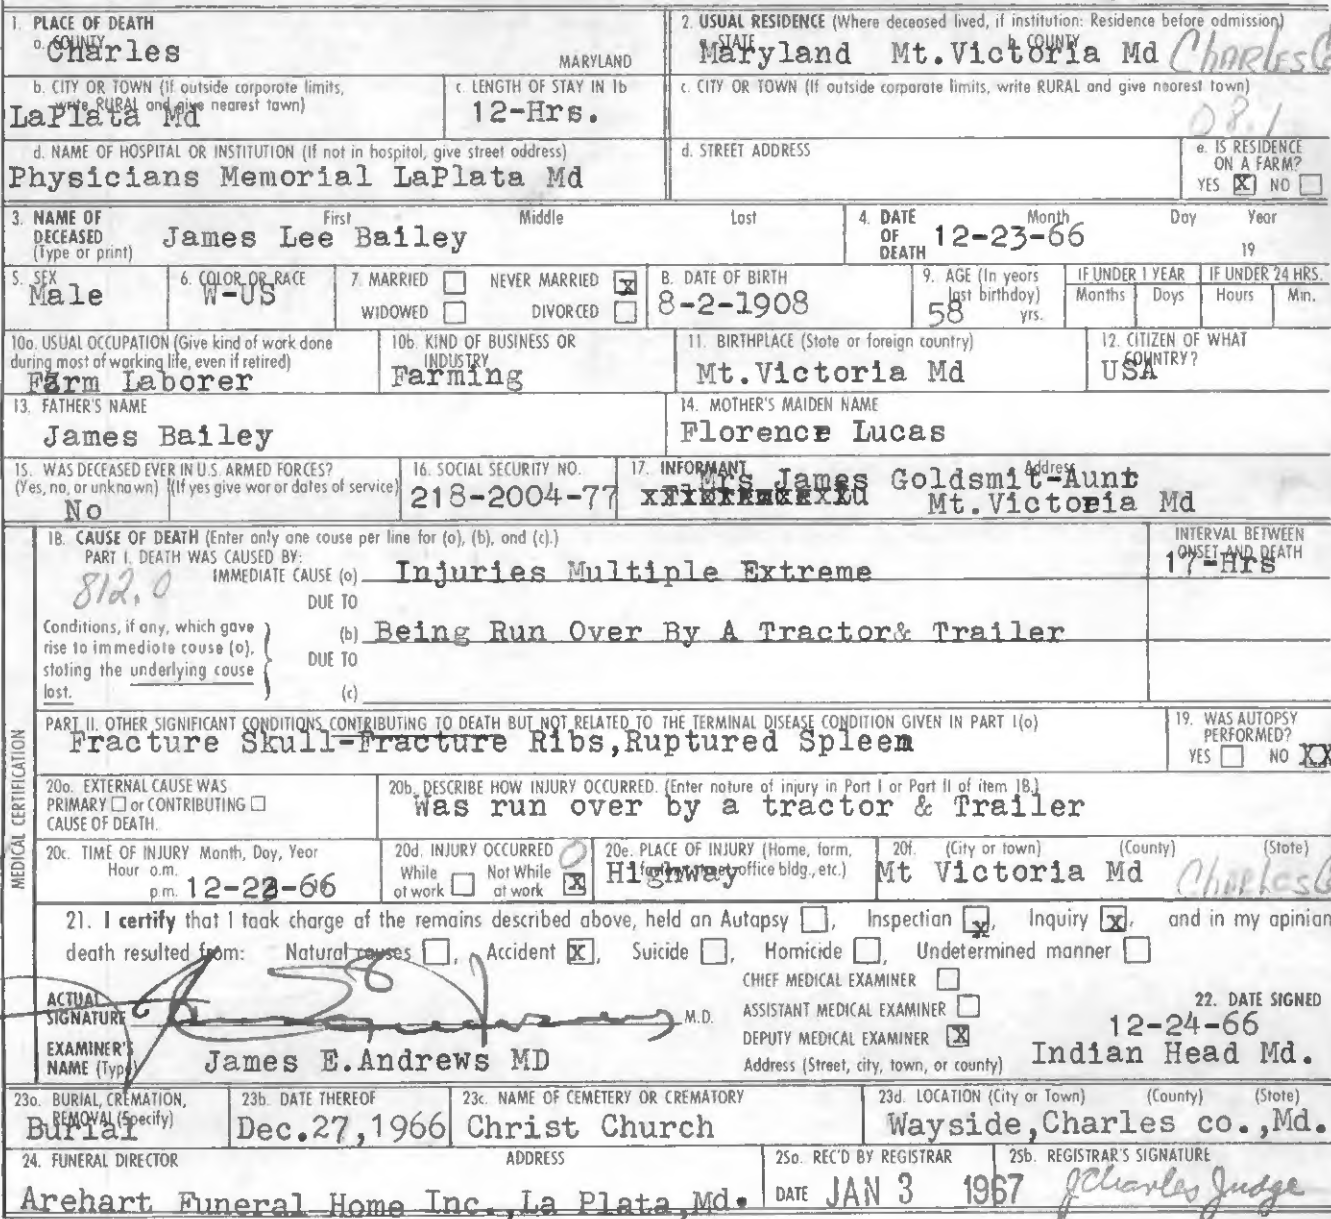 1. PLACE OF DEATH
a. COUNTY Charles MARYLAND
2. USUAL RESIDENCE (Where deceased lived, if institution: Residence before admission)
a. STATE Maryland b. COUNTY Mt.Victoria Md Charles C
b. CITY OR TOWN (If outside corporate limits, write RURAL and give nearest town)
LaPlata Md
c. LENGTH OF STAY IN 1b
12-Hrs.
c. CITY OR TOWN (If outside corporate limits, write RURAL and give nearest town)
08.1
d. NAME OF HOSPITAL OR INSTITUTION (If not in hospital, give street address)
Physicians Memorial LaPlata Md
d. STREET ADDRESS
e. IS RESIDENCE ON A FARM?
YES X NO
3. NAME OF DECEASED (Type or print) First Middle Last
James Lee Bailey
4. DATE OF DEATH Month Day Year
12-23-66 19
5. SEX
Male
6. COLOR OR RACE
W-US
7. MARRIED NEVER MARRIED X
WIDOWED DIVORCED
8. DATE OF BIRTH
8-2-1908
9. AGE (In years last birthday)
58 yrs.
IF UNDER 1 YEAR Months Days
IF UNDER 24 HRS. Hours Min.
10a. USUAL OCCUPATION (Give kind of work done during most of working life, even if retired)
Farm Laborer
10b. KIND OF BUSINESS OR INDUSTRY
Farming
11. BIRTHPLACE (State or foreign country)
Mt.Victoria Md
12. CITIZEN OF WHAT COUNTRY?
USA
13. FATHER'S NAME
James Bailey
14. MOTHER'S MAIDEN NAME
Florence Lucas
15. WAS DECEASED EVER IN U.S. ARMED FORCES?
(Yes, no, or unknown) (If yes give war or dates of service)
No
16. SOCIAL SECURITY NO.
218-2004-77
17. INFORMANT Address
Mrs James Goldsmit-Aunt
Mt.Victoria Md
18. CAUSE OF DEATH (Enter only one cause per line for (a), (b), and (c).)
PART I. DEATH WAS CAUSED BY:
IMMEDIATE CAUSE (a) Injuries Multiple Extreme
812.0
INTERVAL BETWEEN ONSET AND DEATH
17-Hrs
DUE TO
Conditions, if any, which gave rise to immediate cause (a), stating the underlying cause last.
(b) Being Run Over By A Tractor& Trailer
DUE TO
(c)
PART II. OTHER SIGNIFICANT CONDITIONS CONTRIBUTING TO DEATH BUT NOT RELATED TO THE TERMINAL DISEASE CONDITION GIVEN IN PART I(a)
Fracture Skull-Fracture Ribs,Ruptured Spleen
19. WAS AUTOPSY PERFORMED?
YES NO XX
MEDICAL CERTIFICATION
20a. EXTERNAL CAUSE WAS
PRIMARY or CONTRIBUTING
CAUSE OF DEATH.
20b. DESCRIBE HOW INJURY OCCURRED. (Enter nature of injury in Part I or Part II of item 18.)
Was run over by a tractor & Trailer
20c. TIME OF INJURY Month, Day, Year
Hour a.m.
p.m. 12-22-66
20d. INJURY OCCURRED
While at work Not While at work X
20e. PLACE OF INJURY (Home, farm, factory, street, office bldg., etc.)
Highway
20f. (City or town) (County) (State)
Mt Victoria Md Charles C
21. I certify that I took charge of the remains described above, held an Autopsy , Inspection x, Inquiry X, and in my opinion
death resulted from: Natural causes , Accident X, Suicide , Homicide , Undetermined manner
CHIEF MEDICAL EXAMINER
ASSISTANT MEDICAL EXAMINER
DEPUTY MEDICAL EXAMINER X
ACTUAL SIGNATURE M.D.
EXAMINER'S NAME (Type) James E.Andrews MD
Address (Street, city, town, or county) Indian Head Md.
22. DATE SIGNED
12-24-66
23a. BURIAL, CREMATION, REMOVAL (Specify)
Burial
23b. DATE THEREOF
Dec.27,1966
23c. NAME OF CEMETERY OR CREMATORY
Christ Church
23d. LOCATION (City or Town) (County) (State)
Wayside,Charles co.,Md.
24. FUNERAL DIRECTOR ADDRESS
Arehart Funeral Home Inc.,La Plata,Md.
25a. REC'D BY REGISTRAR
DATE JAN 3 1967
25b. REGISTRAR'S SIGNATURE
J Charles Judge